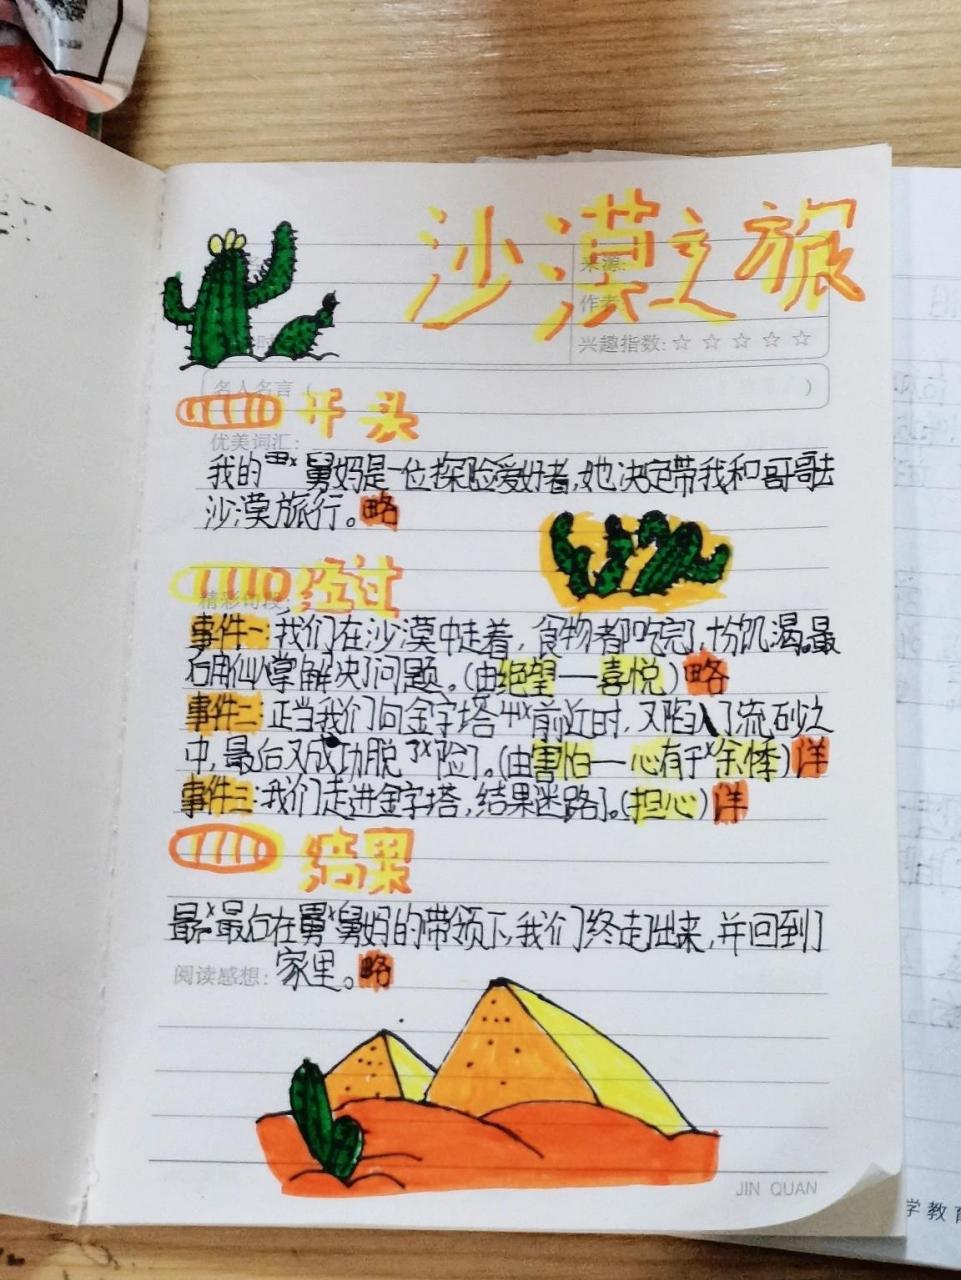 沙漠之旅
来源:
作者
兴趣指数:☆ ☆ ☆ ☆ ☆
名人名言 ( )
开头
优美词汇:
我的舅妈是一位探险爱好者,她决定带我和哥哥去
沙漠旅行。略
经过
精彩句段:
事件一:我们在沙漠中走着,食物都吃完了,十分饥渴。最
后用仙人掌解决了问题。(由绝望—喜悦)略
事件二:正当我们向金字塔前近时,又陷入了流砂之
中,最后又成功脱险了。(由害怕—心有于余悸)洋
事件三:我们走进金字塔,结果迷路了。(担心)洋
结果
最后最后在舅舅妈的带领下,我们终走出来,并回到了
阅读感想: 家里。略
JIN QUAN
学教育